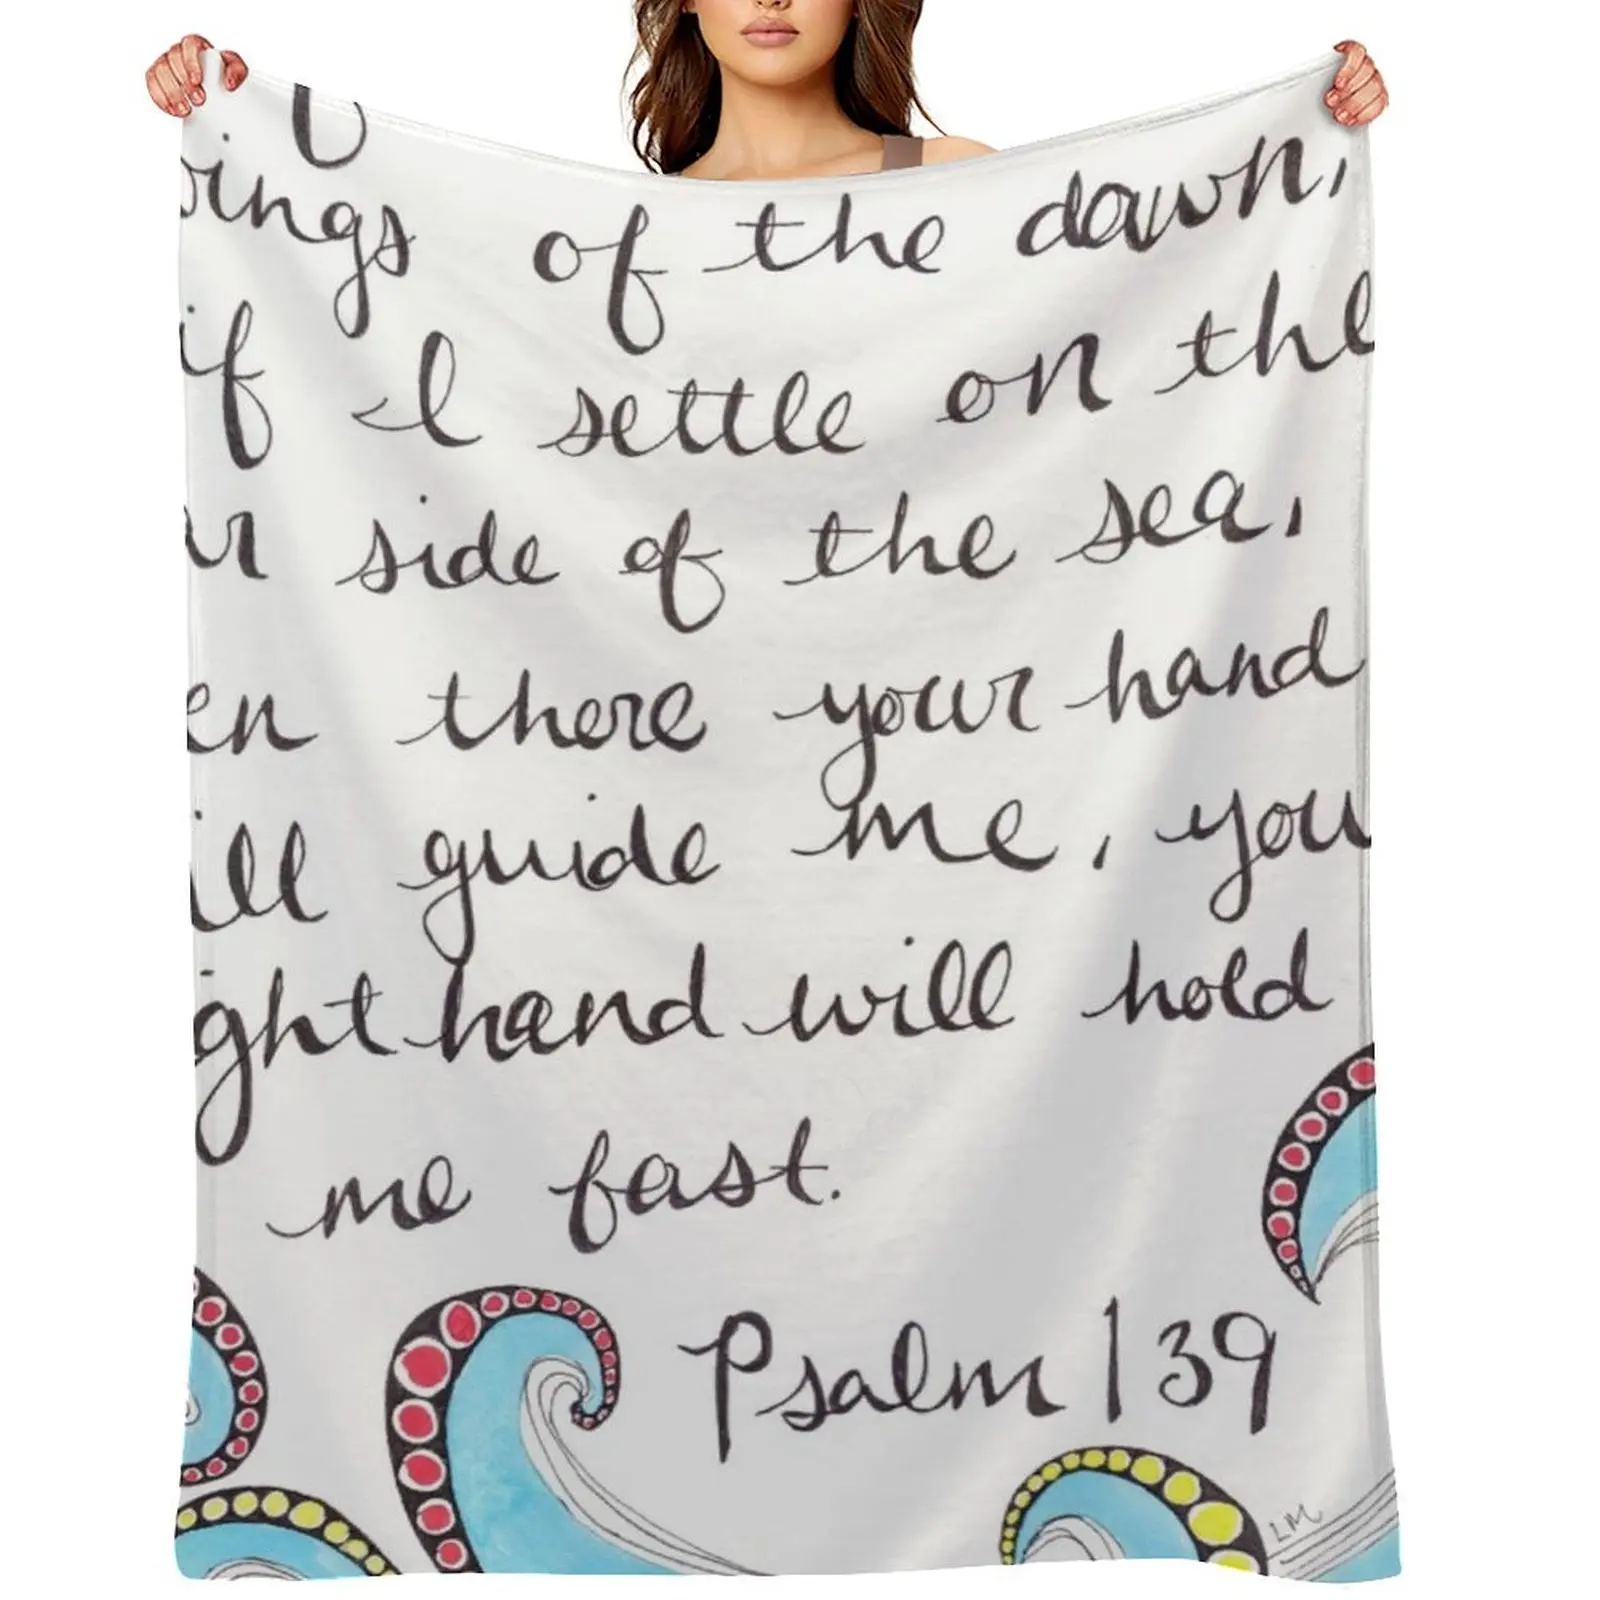 wings of the dawn,
if I settle on the
ar side of the sea,
en there your hand
ill guide me, you
ght hand will hold
me fast.
Psalm 139
LM